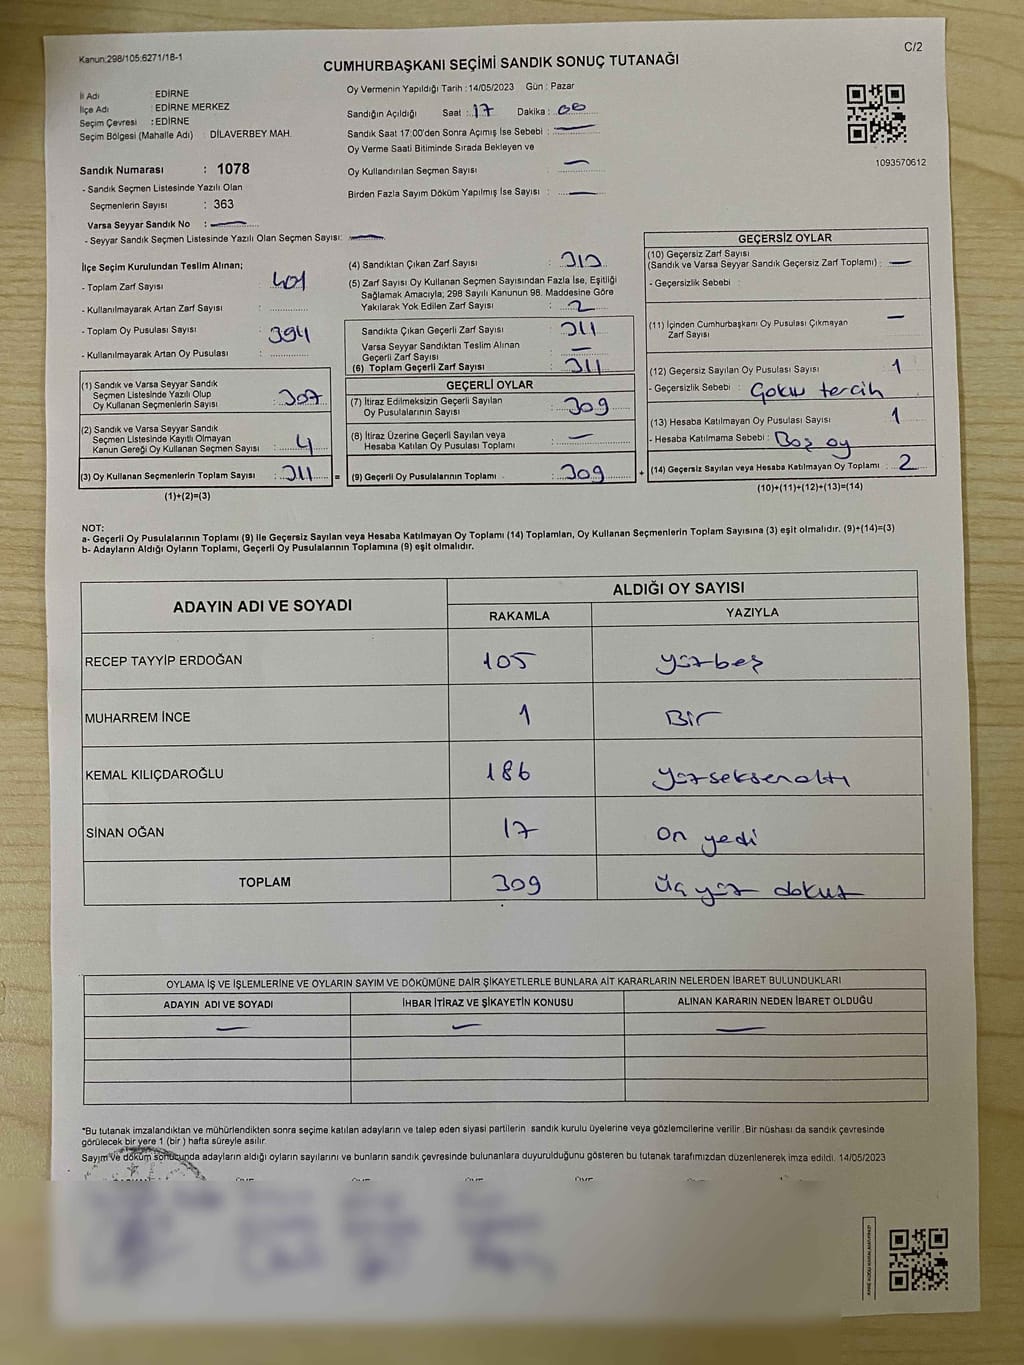 Kanun:298/105:6271/18-1
C/2
CUMHURBAŞKANI SEÇİMİ SANDIK SONUÇ TUTANAĞI
İl Adı : EDİRNE
İlçe Adı : EDİRNE MERKEZ
Seçim Çevresi : EDİRNE
Seçim Bölgesi (Mahalle Adı) : DİLAVERBEY MAH.
Sandık Numarası : 1078
- Sandık Seçmen Listesinde Yazılı Olan
Seçmenlerin Sayısı : 363
Varsa Seyyar Sandık No : —
- Seyyar Sandık Seçmen Listesinde Yazılı Olan Seçmen Sayısı: —
Oy Vermenin Yapıldığı Tarih : 14/05/2023 Gün : Pazar
Sandığın Açıldığı Saat : 17 Dakika : 00
Sandık Saat 17:00'den Sonra Açımış İse Sebebi : —
Oy Verme Saati Bitiminde Sırada Bekleyen ve
Oy Kullandırılan Seçmen Sayısı : —
Birden Fazla Sayım Döküm Yapılmış İse Sayısı : —
1093570612
İlçe Seçim Kurulundan Teslim Alınan;
- Toplam Zarf Sayısı : 401
- Kullanılmayarak Artan Zarf Sayısı :
- Toplam Oy Pusulası Sayısı : 394
- Kullanılmayarak Artan Oy Pusulası :
(1) Sandık ve Varsa Seyyar Sandık
Seçmen Listesinde Yazılı Olup
Oy Kullanan Seçmenlerin Sayısı : 307
(2) Sandık ve Varsa Seyyar Sandık
Seçmen Listesinde Kayıtlı Olmayan
Kanun Gereği Oy Kullanan Seçmen Sayısı : 4
(3) Oy Kullanan Seçmenlerin Toplam Sayısı : 311 =
(1)+(2)=(3)
(4) Sandıktan Çıkan Zarf Sayısı : 313
(5) Zarf Sayısı Oy Kullanan Seçmen Sayısından Fazla İse, Eşitliği
Sağlamak Amacıyla; 298 Sayılı Kanunun 98. Maddesine Göre
Yakılarak Yok Edilen Zarf Sayısı : 2
Sandıkta Çıkan Geçerli Zarf Sayısı : 311
Varsa Seyyar Sandıktan Teslim Alınan
Geçerli Zarf Sayısı : —
(6) Toplam Geçerli Zarf Sayısı : 311
GEÇERLİ OYLAR
(7) İtiraz Edilmeksizin Geçerli Sayılan
Oy Pusulalarının Sayısı : 309
(8) İtiraz Üzerine Geçerli Sayılan veya
Hesaba Katılan Oy Pusulaları Toplamı : —
(9) Geçerli Oy Pusulalarının Toplamı : 309 +
GEÇERSİZ OYLAR
(10) Geçersiz Zarf Sayısı
(Sandık ve Varsa Seyyar Sandık Geçersiz Zarf Toplamı) : —
- Geçersizlik Sebebi :
(11) İçinden Cumhurbaşkanı Oy Pusulası Çıkmayan
Zarf Sayısı —
(12) Geçersiz Sayılan Oy Pusulası Sayısı : 1
- Geçersizlik Sebebi : Çoklu tercih
(13) Hesaba Katılmayan Oy Pusulası Sayısı : 1
- Hesaba Katılmama Sebebi : Boş oy
(14) Geçersiz Sayılan veya Hesaba Katılmayan Oy Toplamı : 2
(10)+(11)+(12)+(13)=(14)
NOT:
a- Geçerli Oy Pusulalarının Toplamı (9) ile Geçersiz Sayılan veya Hesaba Katılmayan Oy Toplamı (14) Toplamları, Oy Kullanan Seçmenlerin Toplam Sayısına (3) eşit olmalıdır. (9)+(14)=(3)
b- Adayların Aldığı Oyların Toplamı, Geçerli Oy Pusulalarının Toplamına (9) eşit olmalıdır.
ADAYIN ADI VE SOYADI
ALDIĞI OY SAYISI
RAKAMLA YAZIYLA
RECEP TAYYİP ERDOĞAN 105 yüzbeş
MUHARREM İNCE 1 Bir
KEMAL KILIÇDAROĞLU 186 yüzseksenaltı
SİNAN OĞAN 17 on yedi
TOPLAM 309 üç yüz dokuz
OYLAMA İŞ VE İŞLEMLERİNE VE OYLARIN SAYIM VE DÖKÜMÜNE DAİR ŞİKAYETLERLE BUNLARA AİT KARARLARIN NELERDEN İBARET BULUNDUKLARI
ADAYIN ADI VE SOYADI İHBAR İTİRAZ VE ŞİKAYETİN KONUSU ALINAN KARARIN NEDEN İBARET OLDUĞU
— — —
*Bu tutanak imzalandıktan ve mühürlendikten sonra seçime katılan adayların ve talep eden siyasi partilerin sandık kurulu üyelerine veya gözlemcilerine verilir .Bir nüshası da sandık çevresinde
görülecek bir yere 1 (bir ) hafta süreyle asılır.
Sayım ve döküm sonucunda adayların aldığı oyların sayılarını ve bunların sandık çevresinde bulunanlara duyurulduğunu gösteren bu tutanak tarafımızdan düzenlenerek imza edildi. 14/05/2023